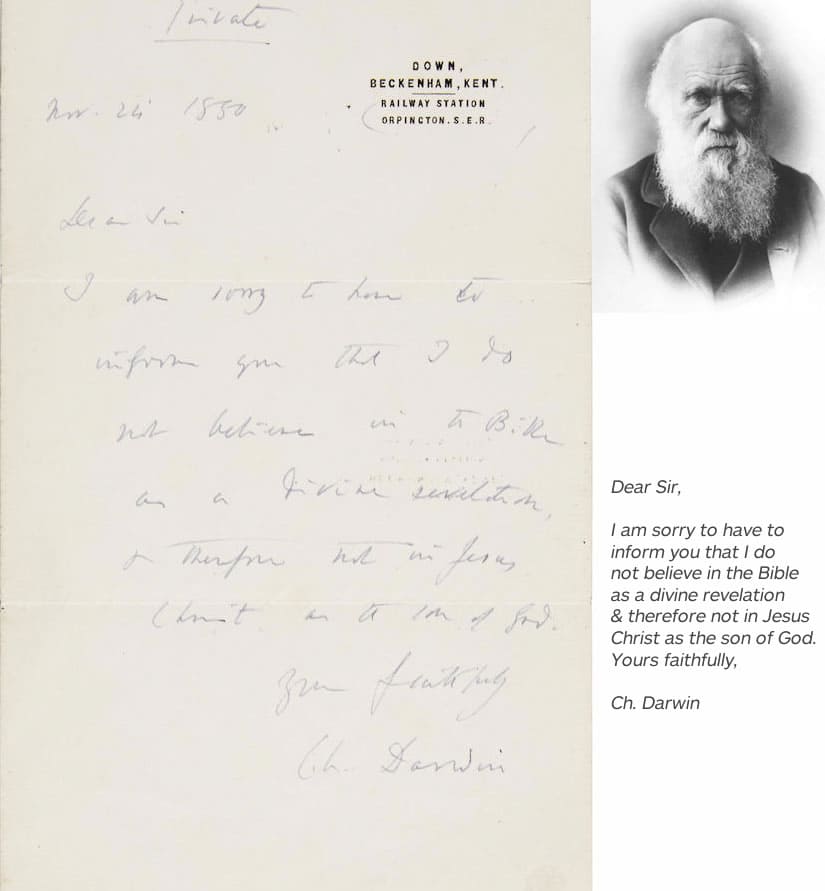 Private
DOWN,
BECKENHAM, KENT.
RAILWAY STATION
ORPINGTON. S.E.R.
Nov. 24 1880
Dear Sir
I am sorry to have to
inform you that I do
not believe in the Bible
as a divine revelation,
& therefore not in Jesus
Christ as the son of God.
Yours faithfully
Ch. Darwin
Dear Sir,
I am sorry to have to
inform you that I do
not believe in the Bible
as a divine revelation
& therefore not in Jesus
Christ as the son of God.
Yours faithfully,
Ch. Darwin